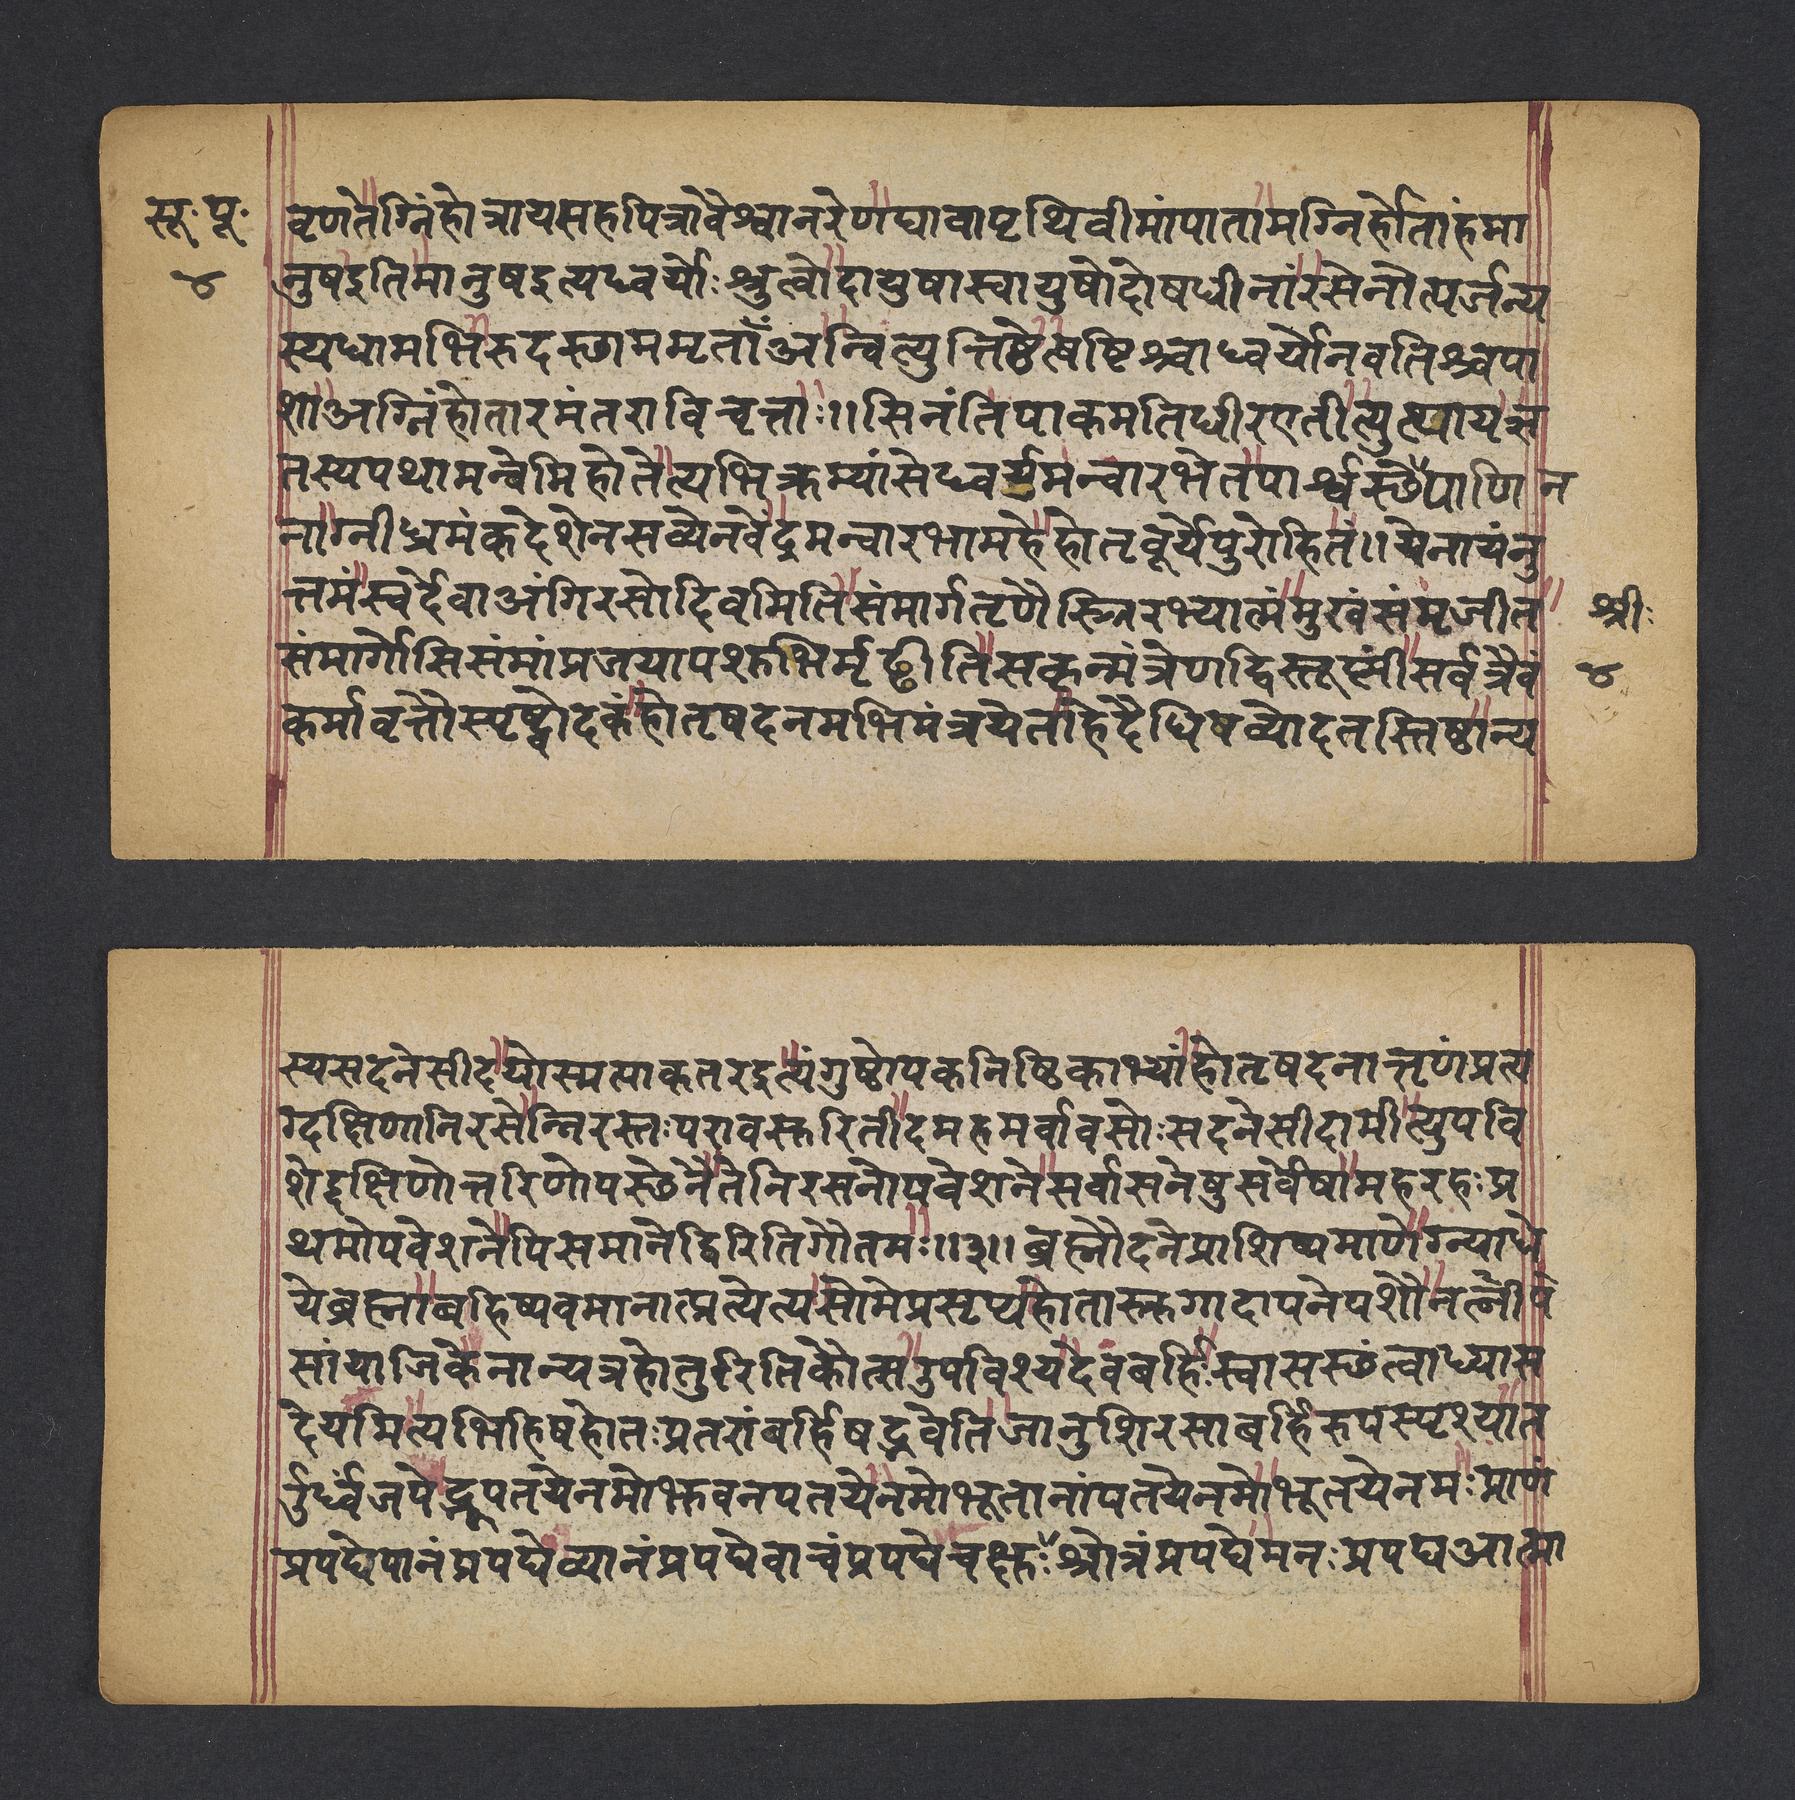 सू॰ पू॰
४
वृणतेग्निंहोत्रायसहपित्रावैश्वानरेणद्यावापृथिवीमांपातामग्निर्होताहंमा
नुषइतिमानुषइत्यध्वर्योःश्रुत्वोदायुषास्वायुषोदोषधीनांरसेनोत्पर्जन्य
स्यधामभिरुदस्थाममृताँअन्वित्युत्तिष्ठेत्षष्टिश्चाध्वर्योनवतिश्चपा
शाअग्निंहोतारमंतराविचृत्ताः॥सिनंतिपाकमतिधीरएतीत्युत्थायऋ
तस्यपथामन्वेमिहोतेत्यभिक्रम्यांसेध्वर्युमन्वारभेतपार्श्वस्थेनपाणि
नाग्नीध्रमंकदेशेनसव्येनवेंद्रमन्वारभामहेहोतृवूर्येपुरोहितं॥येनायंनु
त्तमंस्वर्देवाअंगिरसोदिवमितिसंमार्गतृणैस्त्रिरभ्यात्मंमुखंसंमृजीत
संमार्गोसिसंमांप्रजयापशुभिर्मृड्ढीतिसकृन्मंत्रेणद्विस्तूष्णींसर्वत्रैवं
कर्मावृत्तौस्पृष्ट्वोदकंहोतृषदनमभिमंत्रयेताहेदैधिषव्योदतस्तिष्ठान्य
श्रीः
४
स्यसदनेसीदयोस्मत्पाकतरइत्यंगुष्ठोपकनिष्ठिकाभ्यांहोतृषदनात्तृणंप्रत्य
ग्दक्षिणानिरसेन्निरस्तःपरावसुरितीदमहमर्वावसोःसदनेसीदामीत्युपवि
शेद्दक्षिणोत्तरिणोपस्थेनैतेनिरसनोपवेशनेसर्वासनेषुसर्वेषामहरहःप्र
थमोपवेशनेपिसमानेद्विरितिगौतमः॥३॥ब्रह्मौदनेप्राशिष्यमाणेग्न्याधे
येब्रह्माबहिष्पवमानात्प्रत्येत्यसोमेप्रसृप्यहोतास्रुगादापनेपशौनत्नीषे
सांयाजिकेनान्यत्रहोतुरितिकौत्सउपविश्यदेवबर्हिःस्वासस्थंत्वाध्यास
देयमित्यभिहिषहोतःप्रतरांबर्हिषद्भवेतिजानुशिरसाबर्हिरुपस्पृश्यात
र्ऊर्ध्वंजपेद्भूपतयेनमोभुवनपतयेनमोभूतानांपतयेनमोभूतयेनमःप्राणं
प्रपद्येपानंप्रपद्येव्यानंप्रपद्येवाचंप्रपद्येचक्षुःश्रोत्रंप्रपद्येमनःप्रपद्यआत्मा